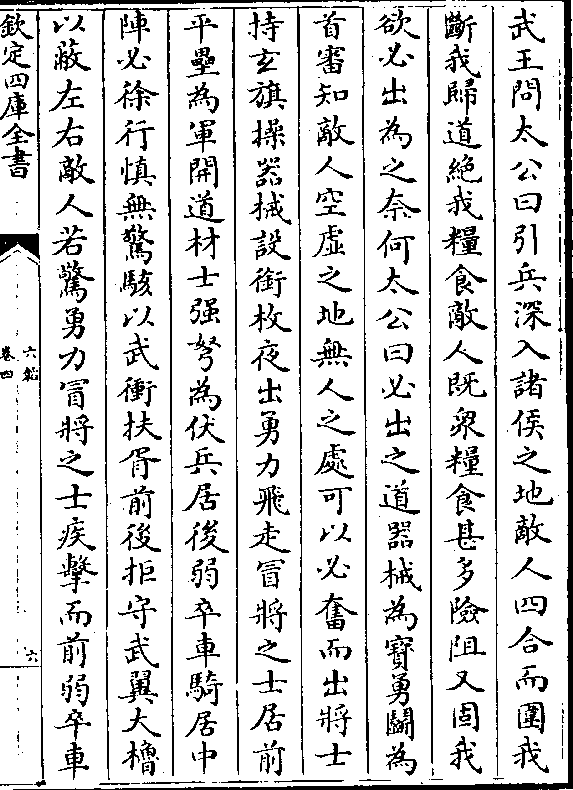 武王問太公曰引兵深入諸侯之地敵人四合而圍我
斷我歸道絶我糧食敵人既衆糧食甚多險阻又固我
欲必出為之奈何太公曰必出之道器械為寳勇鬭為
首審知敵人空虛之地無人之處可以必奮而出將士
持玄旗操器械設銜枚夜出勇力飛走冒將之士居前
平壘為軍開道材士强弩為伏兵居後弱卒車騎居中
陣必徐行慎無驚駭以武衝扶胥前後拒守武翼大櫓
以蔽左右敵人若驚勇力冒將之士疾擊而前弱卒車
欽定四庫全書
六韜
卷四
六